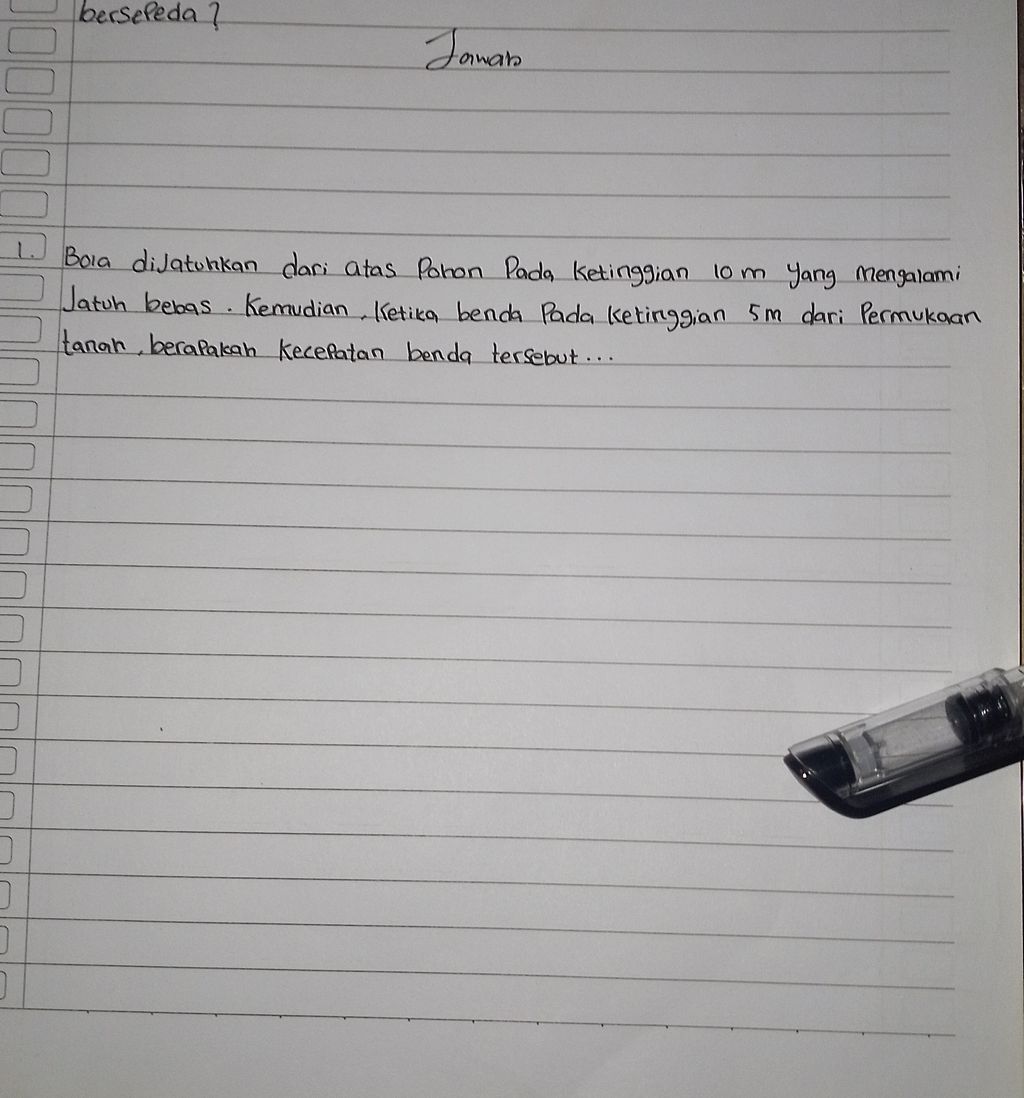 bersepeda?
Jawab
1. Bola diJatuhkan dari atas Pohon Pada Ketinggian 10 m yang mengalami
Jatuh bebas. Kemudian, Ketika benda Pada Ketinggian 5m dari Permukaan
tanah, berapakah Kecepatan benda tersebut...